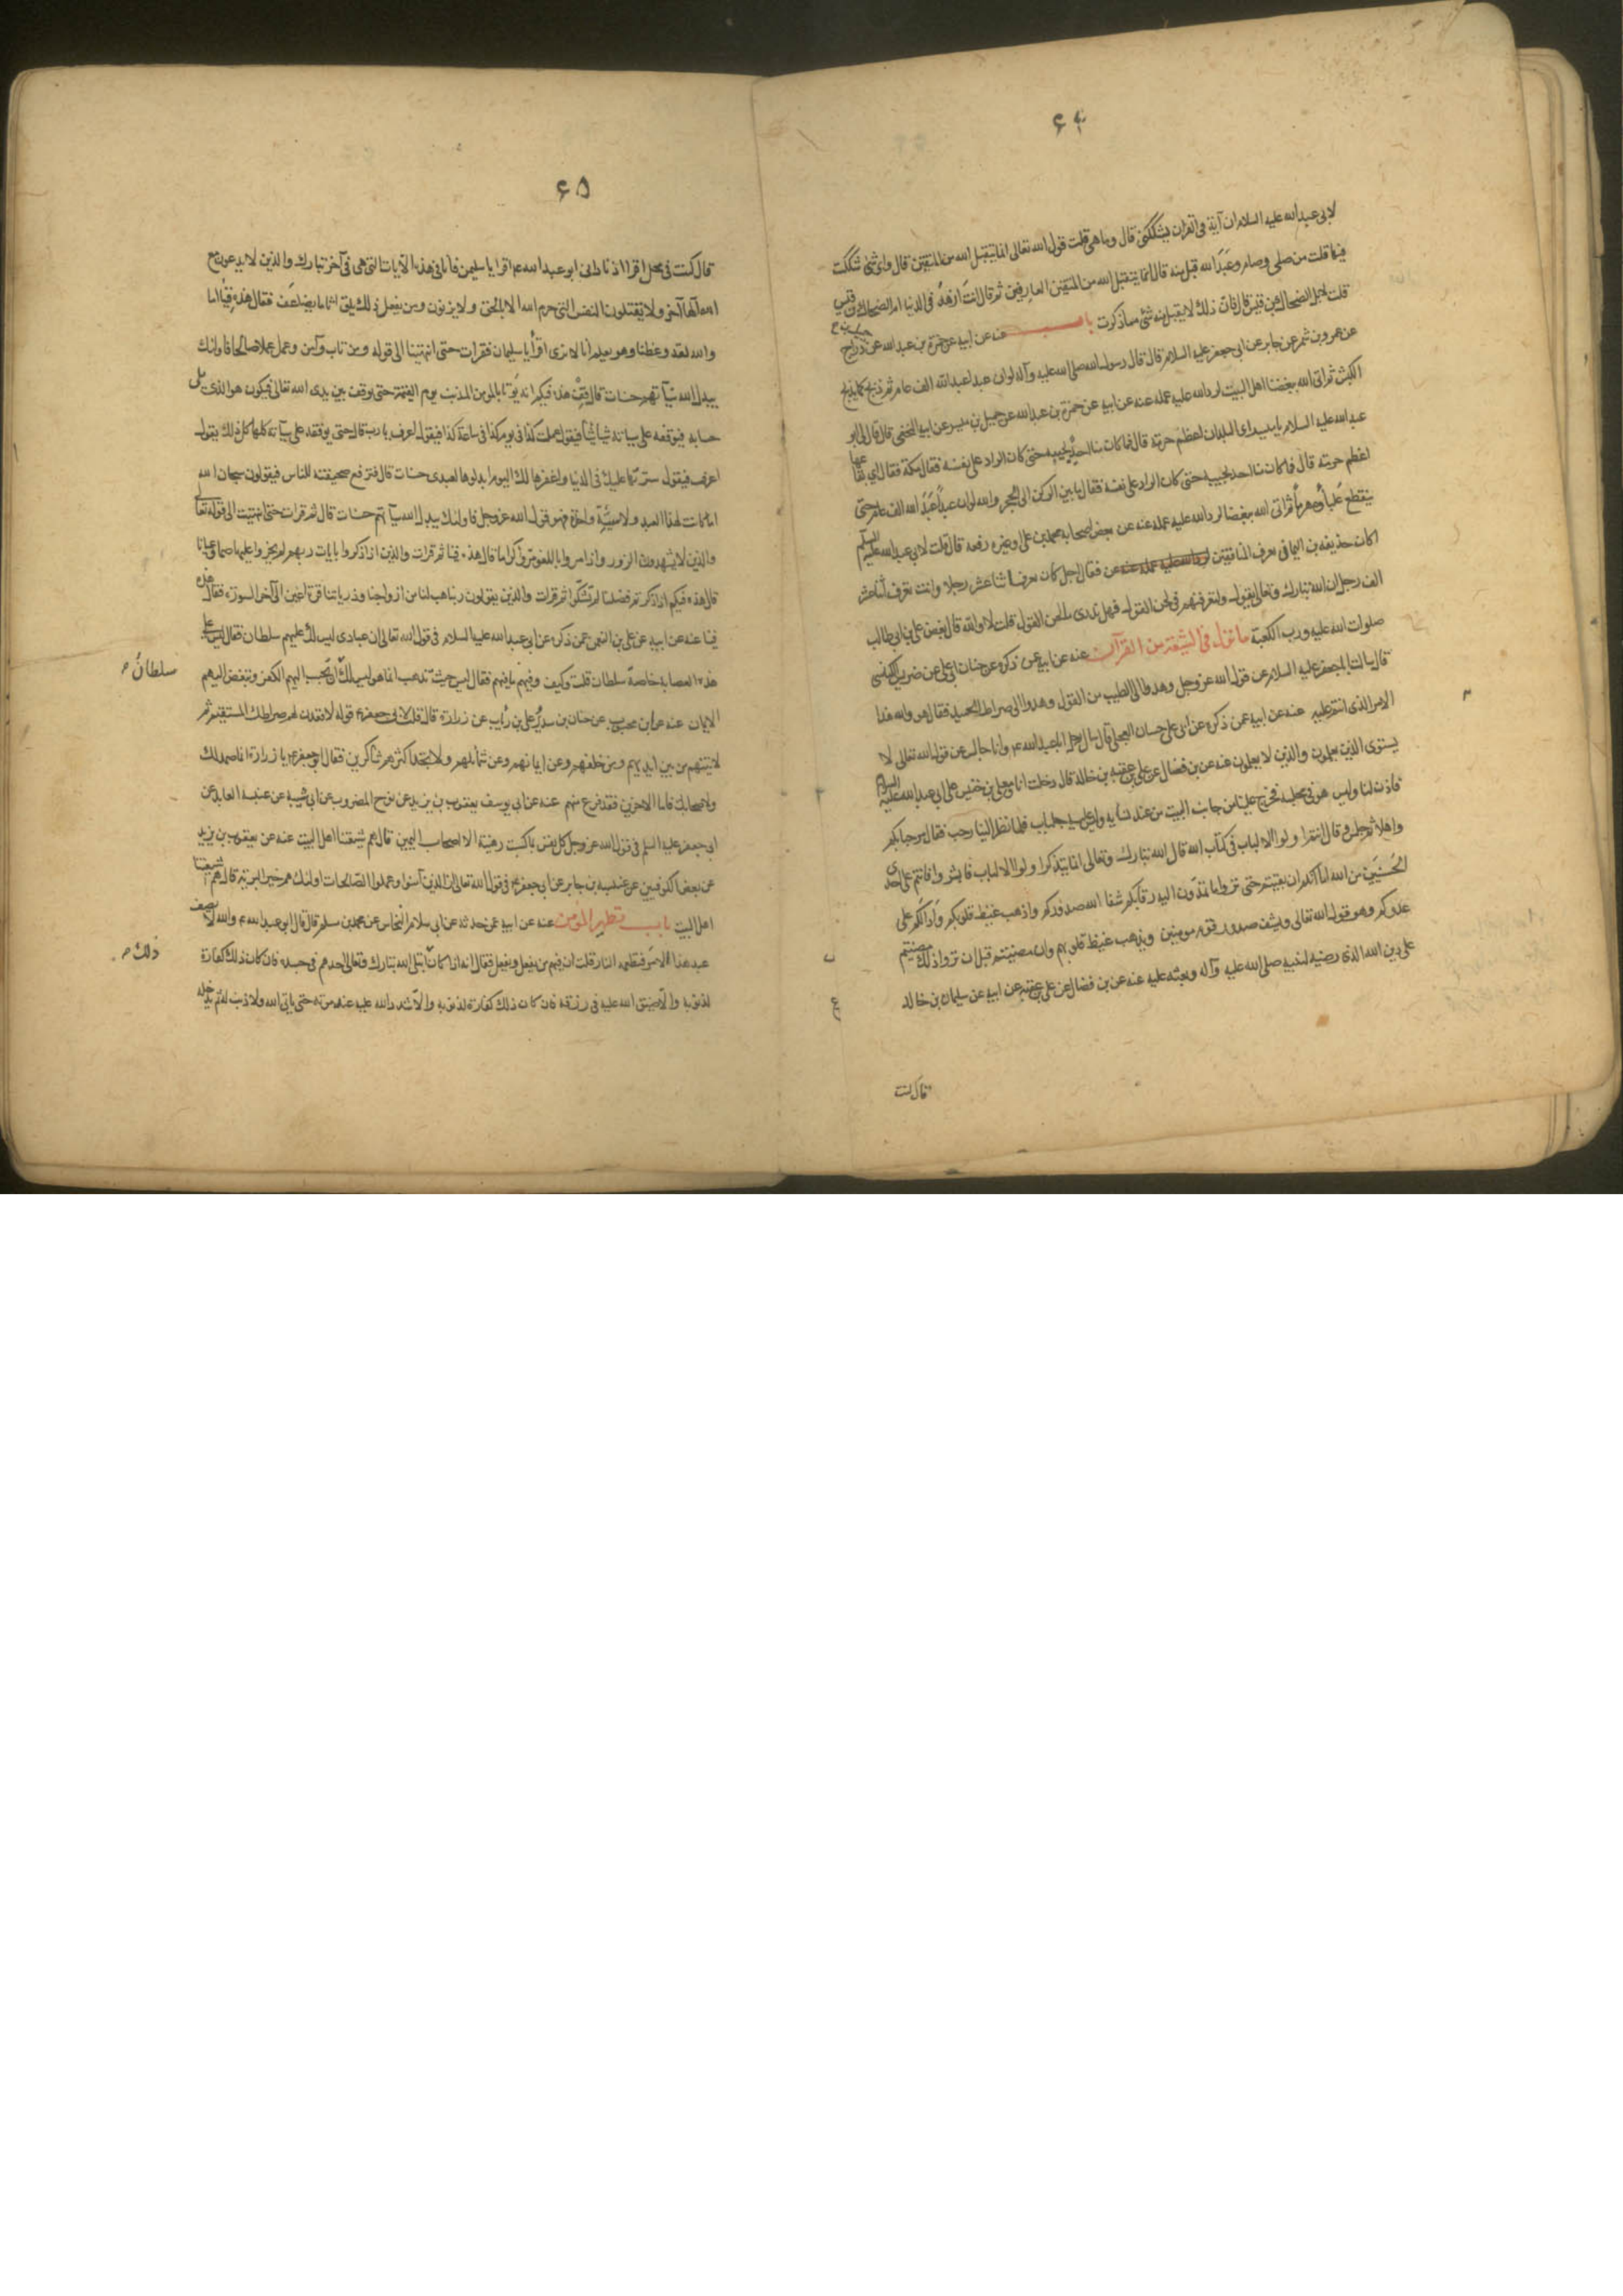 ۶۴
لابی عبد الله علیه السلام ان آیة فی القرآن یشککنی قال وما هی قلت قول الله تعالی انما یتقبل الله من المتقین قال وای شئ شککت
فیها قلت من صلی وصام وعبد الله قبل منه قال انما یتقبل الله من المتقین العارفین ثم قال انت ازهد فی الدنیا ام الضحاک بن قیس
قلت لا بل الضحاک بن قیس قال فان ذلک لا یقبل منه شئ مما ذکرت باب عنه عن ابیه عن حمزة بن عبد الله عن دراج
عن عمرو بن شمر عن جابر عن ابی جعفر علیه السلام قال قال رسول الله صلی الله علیه وآله لو ان عبدا عبد الله الف عام ثم ذبح کما یذبح
الکبش ثم اتی الله ببغضنا اهل البیت لرد الله علیه عمله عنه عن ابیه عن حمزة بن عبد الله عن جمیل بن میسر عن ابیه النخعی قال قال لی ابو
عبد الله علیه السلام یا میسر ای البلدان اعظم حرمة قال فما کان منا احد یجیبه حتی کان الراد علی نفسه فقال مکة فقال ای بقاعها
اعظم حرمة قال فما کان منا احد یجیبه حتی کان الراد علی نفسه فقال ما بین الرکن الی الحجر والله لو ان عبدا عبد الله الف عام حتی
ینقطع علباؤه هرما ثم اتی الله ببغضنا لرد الله علیه عمله عنه عن بعض اصحابه محمد بن علی وغیره رفعه قال قلت لابی عبد الله علیه السلم
اکان حذیفه بن الیمانی یعرف المنافقین فقال اجل کان یعرف اثنا عشر رجلا وانت تعرف اثنا عشر
الف رجل ان الله تبارک وتعالی یقول ولتعرفنهم فی لحن القول فهل تدری ما لحن القول قلت لا والله قال بغض علی بن ابی طالب
صلوات الله علیه ورب الکعبة ما نزل فی الشیعة من القرآن عنه عن ابیه عمن ذکره عن حنان ابی علی عن ضریس الکناسی
قال سالت ابا جعفر علیه السلام عن قول الله عز وجل وهدوا الی الطیب من القول وهدوا الی صراط الحمید فقال هو والله هذا
الامر الذی انتم علیه عنه عن ابیه عمن ذکره عن ابی علی حسان العجلی قال سال رجل ابا عبد الله ع وانا جالس عن قول الله تعالی لا
یستوی الذین یعلمون والذین لا یعلمون عنه عن بن فضال عن علی بن عقبة بن خالد قال دخلت انا ومعلی بن خنیس علی ابی عبد الله علیه السلام
فاذن لنا ولیس هو فی مجلسه فخرج علینا من جانب البیت من عند نسایه ولیس علیه جلباب فلما نظر الینا رحب فقال مرحبا بکم
واهلا ثم جلس وقال انتم اولوا الالباب فی کتاب الله قال الله تبارک وتعالی انما یتذکر اولوا الالباب فابشروا فانتم علی احدی
الحسنیین من الله اما انکم ان بقیتم حتی تروا ما تمدون الیه رقابکم شفا الله صدورکم واذهب غیظ قلوبکم وادالکم علی
عدوکم وهو قول الله تعالی ویشف صدور قوم مومنین ویذهب غیظ قلوبهم وان مضیتم قبل ان تروا ذلک مضیتم
علی دین الله الذی رضیه لنبیه صلی الله علیه وآله وبعثه علیه عنه عن بن فضال عن علی بن عقبة عن ابیه عن سلیمان بن خالد
قال کنت
۶۵
قال کنت فی محمل اقرا اذ نادانی ابو عبد الله ع اقرا یا سلیمن فانا فی هذه الآیات التی هی فی آخر تبارک والذین لا یدعون مع
الله آلها آخر ولا یقتلون النفس التی حرم الله الا بالحق ولا یزنون ومن یفعل ذلک یلق اثاما یضاعف فقال هذه فینا اما
والله لقد وعظنا وهو یعلم انا لا نزنی اقرأ یا سلیمان فقرات حتی انتهیت الی قوله ومن تاب وآمن وعمل عملا صالحا فاولئک
یبدل الله سیآتهم حسنات قال قف هذه فیکم انه یؤتا بالمومن المذنب یوم القیمة حتی یوقف بین یدی الله تعالی فیکون هو الذی یلی
حسابه فیوقفه علی سیاته شیا شیا فیقول عملت کذا فی یوم کذا فی ساعة کذا فیقول اعرف یا رب قال حتی یوقفه علی سیآته کلها کل ذلک یقول
اعرف فیقول سترتها علیک فی الدنیا واغفرها لک الیوم ابدلوها لعبدی حسنات قال فترفع صحیفته للناس فیقولون سبحان الله
اما کانت لهذا العبد ولا سیئة واحدة فهو قول الله عز وجل فاولئک یبدل الله سیآتهم حسنات قال ثم قرات حتی انتهیت الی قوله تعا
والذین لا یشهدون الزور واذا مروا باللغو مروا کراما قال هذه فینا ثم قرات والذین اذا ذکروا بایات ربهم لم یخروا علیها صما وعمیانا
قال هذه فیکم اذا ذکرتم فضلنا لم تشکوا ثم قرات والذین یقولون ربنا هب لنا من ازواجنا وذریاتنا قرة اعین الی آخر السورة فقال هذه
فینا عنه عن ابیه عن علی بن النعمن عمن ذکره عن ابی عبد الله علیه السلام فی قول الله تعالی ان عبادی لیس لک علیهم سلطان فقال لیس علی
هذه العصابة خاصة سلطان قلت وکیف وفیهم ما فیهم فقال لیس حیث تذهب انما هو لیس لک ان تحبب الیهم الکفر وتبغض الیهم
سلطان ص
الایمان عنه عن ابن محبوب عن حنان بن سدیر وعلی بن رئاب عن زرارة قال قلت لابی جعفر ع قوله لاقعدن لهم صراطک المستقیم ثم
لاتینهم من بین ایدیهم ومن خلفهم وعن ایمانهم وعن شمائلهم ولا تجد اکثرهم شاکرین فقال ابو جعفر ع یا زرارة انما صمد لک
ولاصحابک فاما الاخرین فقد فرغ منهم عنه عن ابی یوسف یعقوب بن یزید عن نوح المضروب عن ابی شیبه عن عنبسه العابد عن
ابی جعفر علیه السلم فی قول الله عز وجل کل نفس بما کسبت رهینة الا اصحاب الیمین قال هم شیعتنا اهل البیت عنه عن یعقوب بن یزید
عن بعض الکوفیین عن عنبسه بن جابر عن ابی جعفر ع فی قول الله تعالی ان الذین آمنوا وعملوا الصالحات اولئک هم خیر البریة قال هم شیعتنا
اهل البیت باب تطهیر المؤمن عنه عن ابیه عمن حدثه عن ابی سلام النحاس عن محمد بن مسلم قال قال ابو عبد الله ع والله لا یصف
عبد هذا الامر فتطعمه النار قلت ان فیهم من یفعل ویفعل فقال انه اذا کان ابتلی الله تبارک وتعالی احدهم فی جسده فان کان ذلک کفارة
ذلک ص
لذنوبه والا ضیق الله علیه فی رزقه فان کان ذلک کفارة لذنوبه والا شدد الله علیه عند موته حتی یاتی الله ولا ذنب له ثم یدخله